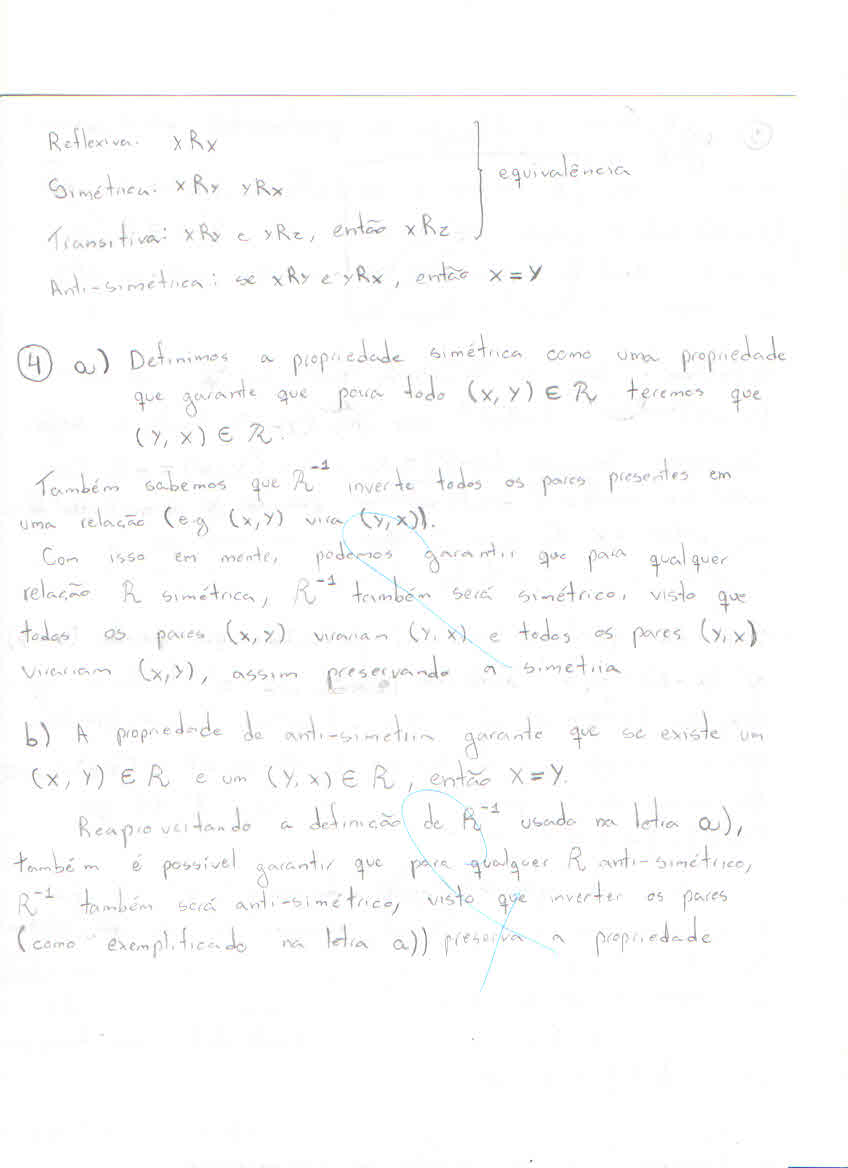 Reflexiva: xRx
Simétrica: xRy yRx
equivalência
Transitiva: xRy e yRz, então xRz
Anti-simétrica: se xRy e yRx, então x = y
4 a) Definimos a propriedade simétrica como uma propriedade
que garante que para todo (x, y) ∈ R teremos que
(y, x) ∈ R.
Também sabemos que R⁻¹ inverte todos os pares presentes em
uma relação (e.g (x,y) vira (y,x)).
Com isso em mente, podemos garantir que para qualquer
relação R simétrica, R⁻¹ também será simétrico, visto que
todos os pares (x,y) virariam (y,x) e todos os pares (y,x)
virariam (x,y), assim preservando a simetria
b) A propriedade de anti-simetria garante que se existe um
(x, y) ∈ R e um (y,x) ∈ R, então x=y.
Reaproveitando a definição de R⁻¹ usada na letra a),
também é possível garantir que para qualquer R anti-simétrico,
R⁻¹ também será anti-simétrico, visto que inverter os pares
(como exemplificado na letra a)) preserva a propriedade